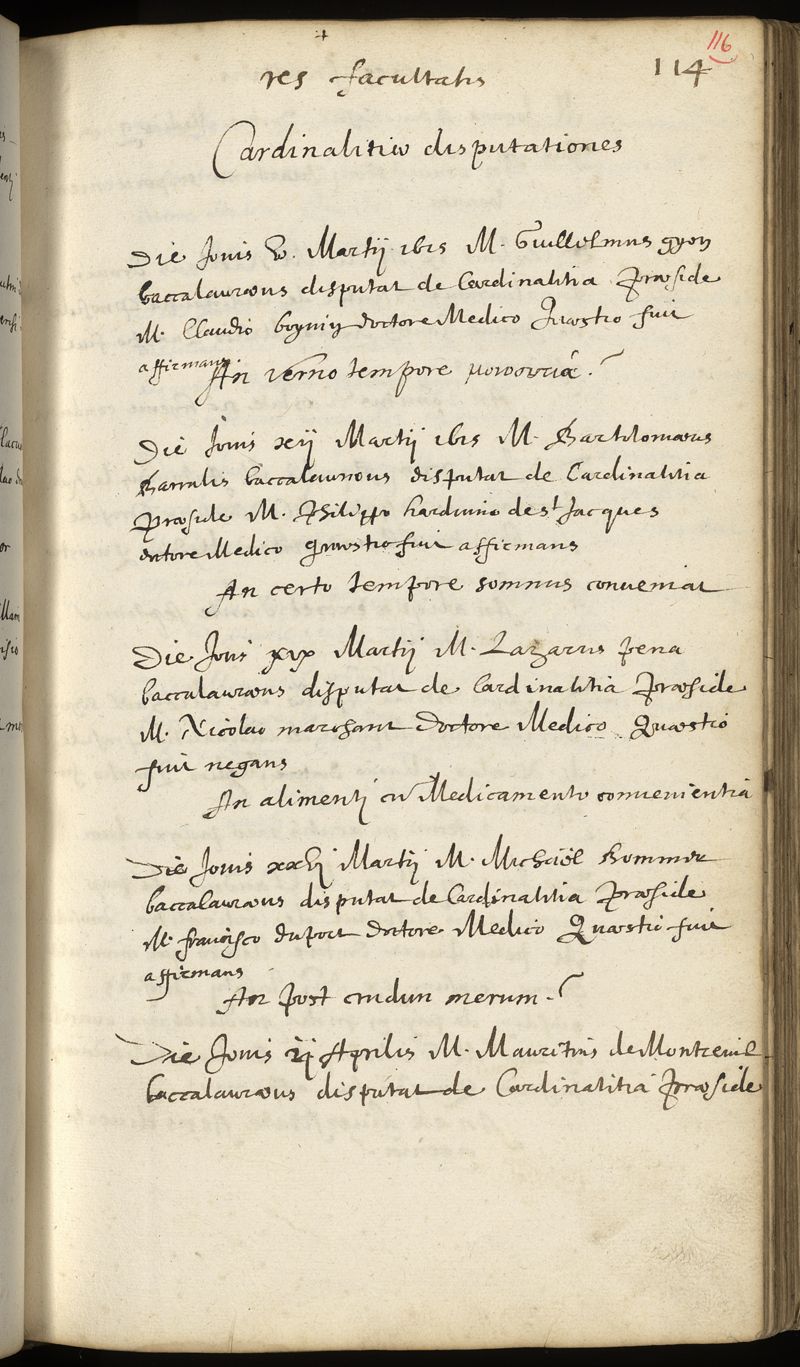 116
res facultatis 114
Cardinalitiæ disputationes
Die Jovis v. Martij M. Guillelmus gyon
baccalauræus disputat de Cardinalitia Præside
M. Claudio doctore Medico Quæstio fuit
affirmans.
An verno tempore μονοσιτία?
Die Jovis xij Martij M. Bartolomæus
Barralis baccalauræus disputat de Cardinalitia
Præside M. Philippo harduino de st Jacques
doctore Medico quæstio fuit affirmans
An certo tempore somnus conveniat
Die Jovis xix Martij M. Lazarus pena
baccalauræus disputat de Cardinalitia Præside
M. Nicolao marchant doctore Medico Quæstio
fuit negans
An alimenti cū Medicamento convenientia
Die Jovis xxvj Martij M. Michäel hommetz
baccalauræus disputat de Cardinalitia Præside
M. francisco duport doctore Medico Quæstio fuit
affirmans
An post crudum merum?
Die Jovis ij Aprilis M. Mauritius de Montreuil
baccalauræus disputat de Cardinalitia Præside